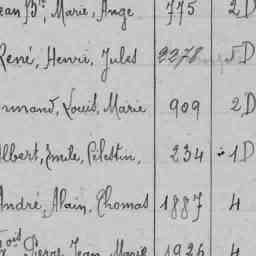 ean Bte, Marie, Ange 775 2D
René, Henri, Jules 2278 5D
rmand, Louis, Marie 909 2D
Albert, Emile, Célestin, 234 1D
André, Alain, Thomas 1887 4
Pierre Jean Marie 1926 4